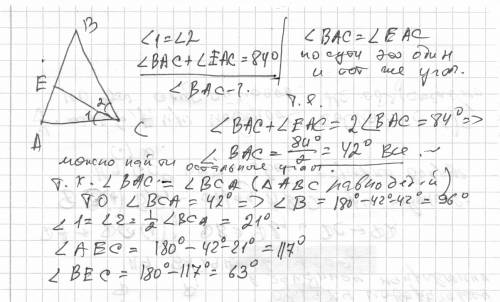 B
E
A
C
1
2
∠1=∠2
∠BAC+∠EAC=84°
∠BAC-?
∠BAC=∠EAC
по сути это один
и тот же угол.
т.к.
∠BAC+∠EAC=2∠BAC=84°=>
∠BAC=84°/2=42° Все ~
можно найти остальные углы.
т.к. ∠BAC=∠BCA (△ABC равнобедр.)
то ∠BCA=42°=>∠B=180°-42°-42°=96°
∠1=∠2=1/2∠BCA=21°
∠AEC=180°-42°-21°=117°
∠BEC=180°-117°=63°